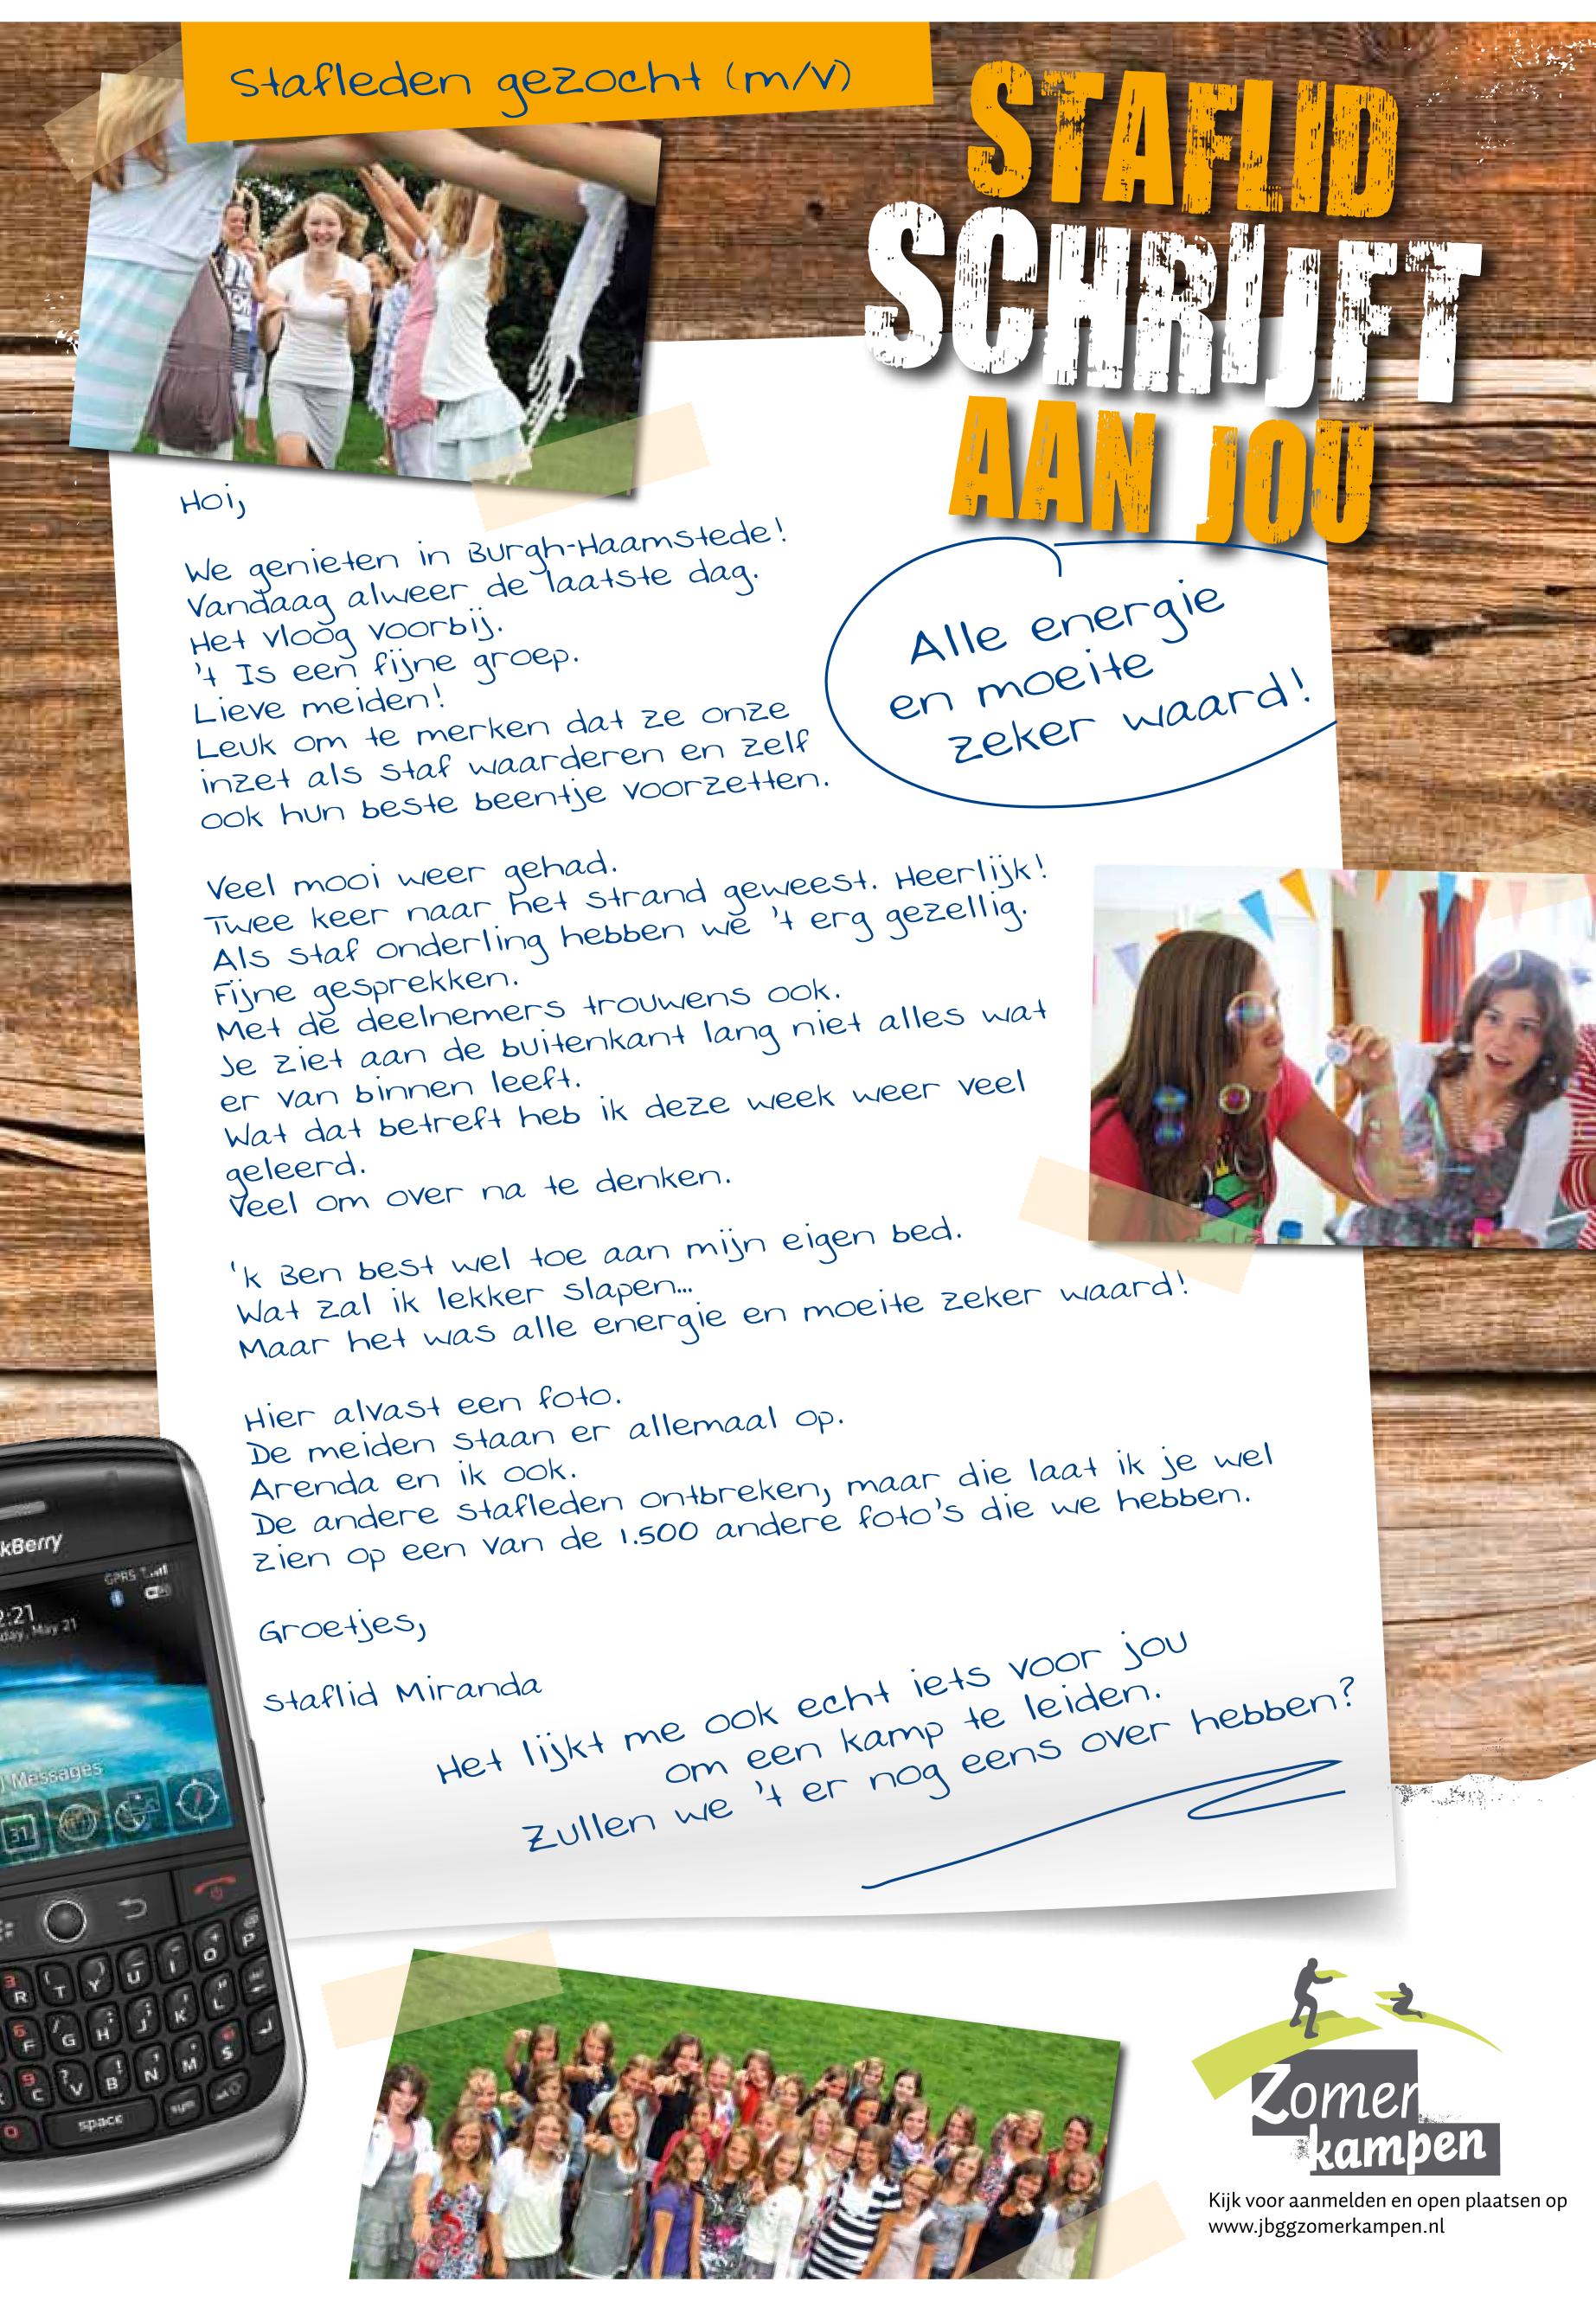 Stafleden gezocht (m/v)
STAFLID
SCHRIJFT
AAN JOU
Hoi,
We genieten in Burgh-Haamstede!
Vandaag alweer de laatste dag.
Het vloog voorbij.
't Is een fijne groep.
Lieve meiden!
Leuk om te merken dat ze onze
inzet als staf waarderen en zelf
ook hun beste beentje voorzetten.
Alle energie
en moeite
zeker waard!
Veel mooi weer gehad.
Twee keer naar het strand geweest. Heerlijk!
Als staf onderling hebben we 't erg gezellig.
Fijne gesprekken.
Met de deelnemers trouwens ook.
Je ziet aan de buitenkant lang niet alles wat
er van binnen leeft.
Wat dat betreft heb ik deze week weer veel
geleerd.
Veel om over na te denken.
'k Ben best wel toe aan mijn eigen bed.
Wat zal ik lekker slapen...
Maar het was alle energie en moeite zeker waard!
Hier alvast een foto.
De meiden staan er allemaal op.
Arenda en ik ook.
De andere stafleden ontbreken, maar die laat ik je wel
zien op een van de 1.500 andere foto's die we hebben.
Groetjes,
Staflid Miranda
Het lijkt me ook echt iets voor jou
om een kamp te leiden.
Zullen we 't er nog eens over hebben?
kBerry
GPRS
2:21
day, May 21
Messages
31
R T Y U I O P
F G H J K L
C V B N M $
space
sym
Zomer
kampen
Kijk voor aanmelden en open plaatsen op
www.jbggzomerkampen.nl